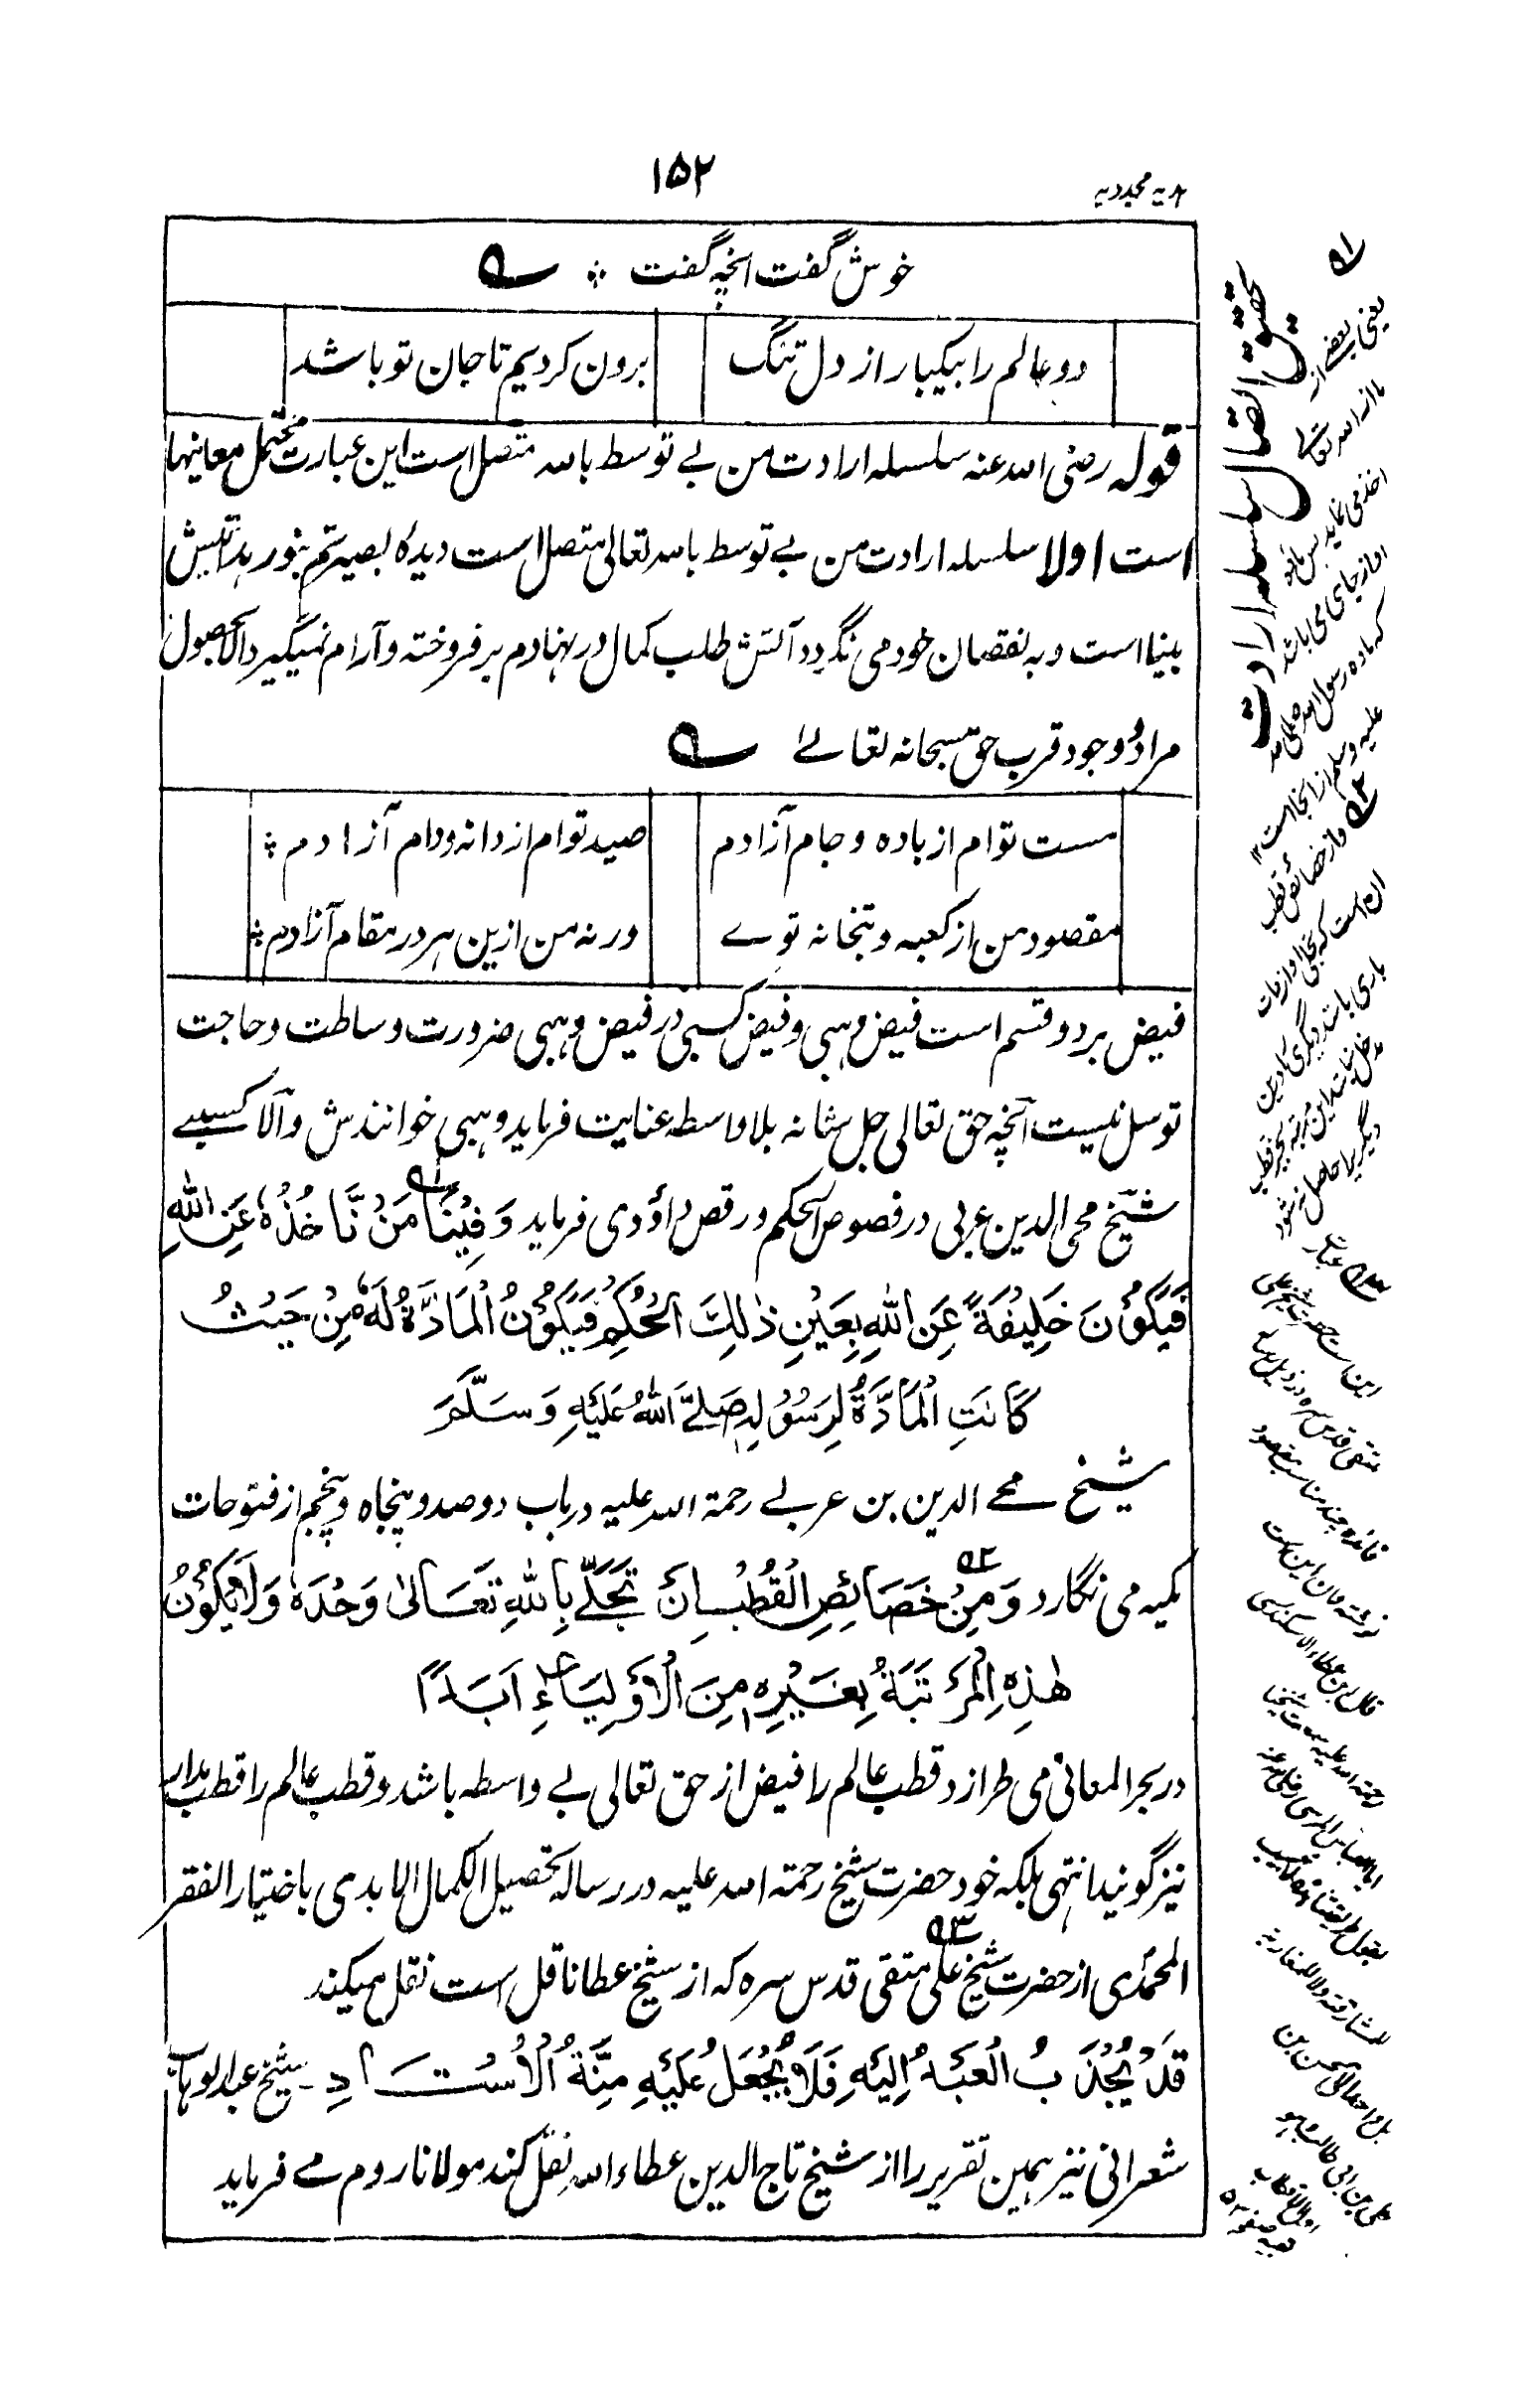 ۱۵۲
خوش گفت انچه گفت ؞ ؎
دو عالم را بیکبار از دل تنگ
برون کردیم تا جان تو باشد
قوله رضی الله عنه سلسله ارادت من بے توسط بالله متصل است این عبارت محتمل معاینها
است اولا سلسله ارادت من بے توسط بالله تعالی متصل است دیدۀ بصیرتم بنور هدایتش
بینا است و به نقصان خود می نگردد آتش طلب کمال در نهادم برفروخته و آرام نمیگیرد الا بحصول
مراد و جود قرب حق سبحانه تعالےٰ ؎
مست توام از باده و جام آزادم
صید توام از دانه و دام آزادم ؞
مقصود من از کعبه و بتخانه توے
ورنه من ازین هر در مقام آزادم ؞
فیض بر دو قسم است فیض وهبی و فیض کسبی در فیض وهبی ضرورت وساطت و حاجت
توسل نیست آنچه حق تعالی جل شانه بلا واسطه عنایت فرماید وهبی خوانندش والا کسبے
شیخ محی الدین عربی در فصوص الحکم در فص داؤدی فرماید وَفِیْنَا مَنْ نَّاخُذُهٗ عَنِ اللّٰهِ
فَیَکُوْنَ خَلِیْفَةً عَنِ اللّٰهِ بِعَیْنِ ذٰلِكَ الْحُکْمِ فَیَکُوْنُ الْمَادَّةُ لَهٗ مِنْ حَیْثُ
کَانَتِ الْمَادَّةُ لِرَسُوْلِهٖ صَلَّے اللّٰهُ عَلَیْهِ وَسَلَّمَ
شیخ محے الدین بن عربے رحمة الله علیه در باب دو صد و پنجاه و پنجم از فتوحات
مکیه می نگارد وَمِنْ خَصَائِصِ الْقُطْبِ اِنَّ تَجَلّٰے بِاللّٰهِ تَعَالٰی وَحْدَهٗ وَلَا یَکُوْنُ
هٰذِهِ الْمَرْتَبَةُ لِغَیْرِهٖ مِنَ الْاَوْلِیَاءِ اَبَدًا
در بحر المعانی می طرازد قطب عالم را فیض از حق تعالی بے واسطه باشد و قطب عالم را قطب مدار
نیز گویند انتهی بلکه خود حضرت شیخ رحمة الله علیه در رساله تحصیل الکمال الابدی باختیار الفقر
المحمدی از حضرت شیخ علی متقی قدس سره که از شیخ عطا ناقل است نقل میکند
قَدْ یُجْذَبُ الْعَبْدُ اِلَیْهِ فَلَا یُجْعَلُ عَلَیْهِ مِنَّةُ الْاُسْتَادِ - شیخ عبدالوهاب
شعرانی نیز همین تقریر را از شیخ تاج الدین عطاء الله نقل کند مولانا روم مے فرماید
تحقیق اتصال سلسله ارادت
یعنی بعضے از
ما از الله تعالے
اخذ می نماید
علیه وسلم از انجا است ۱۲
و از خصائص قطب
آن است که